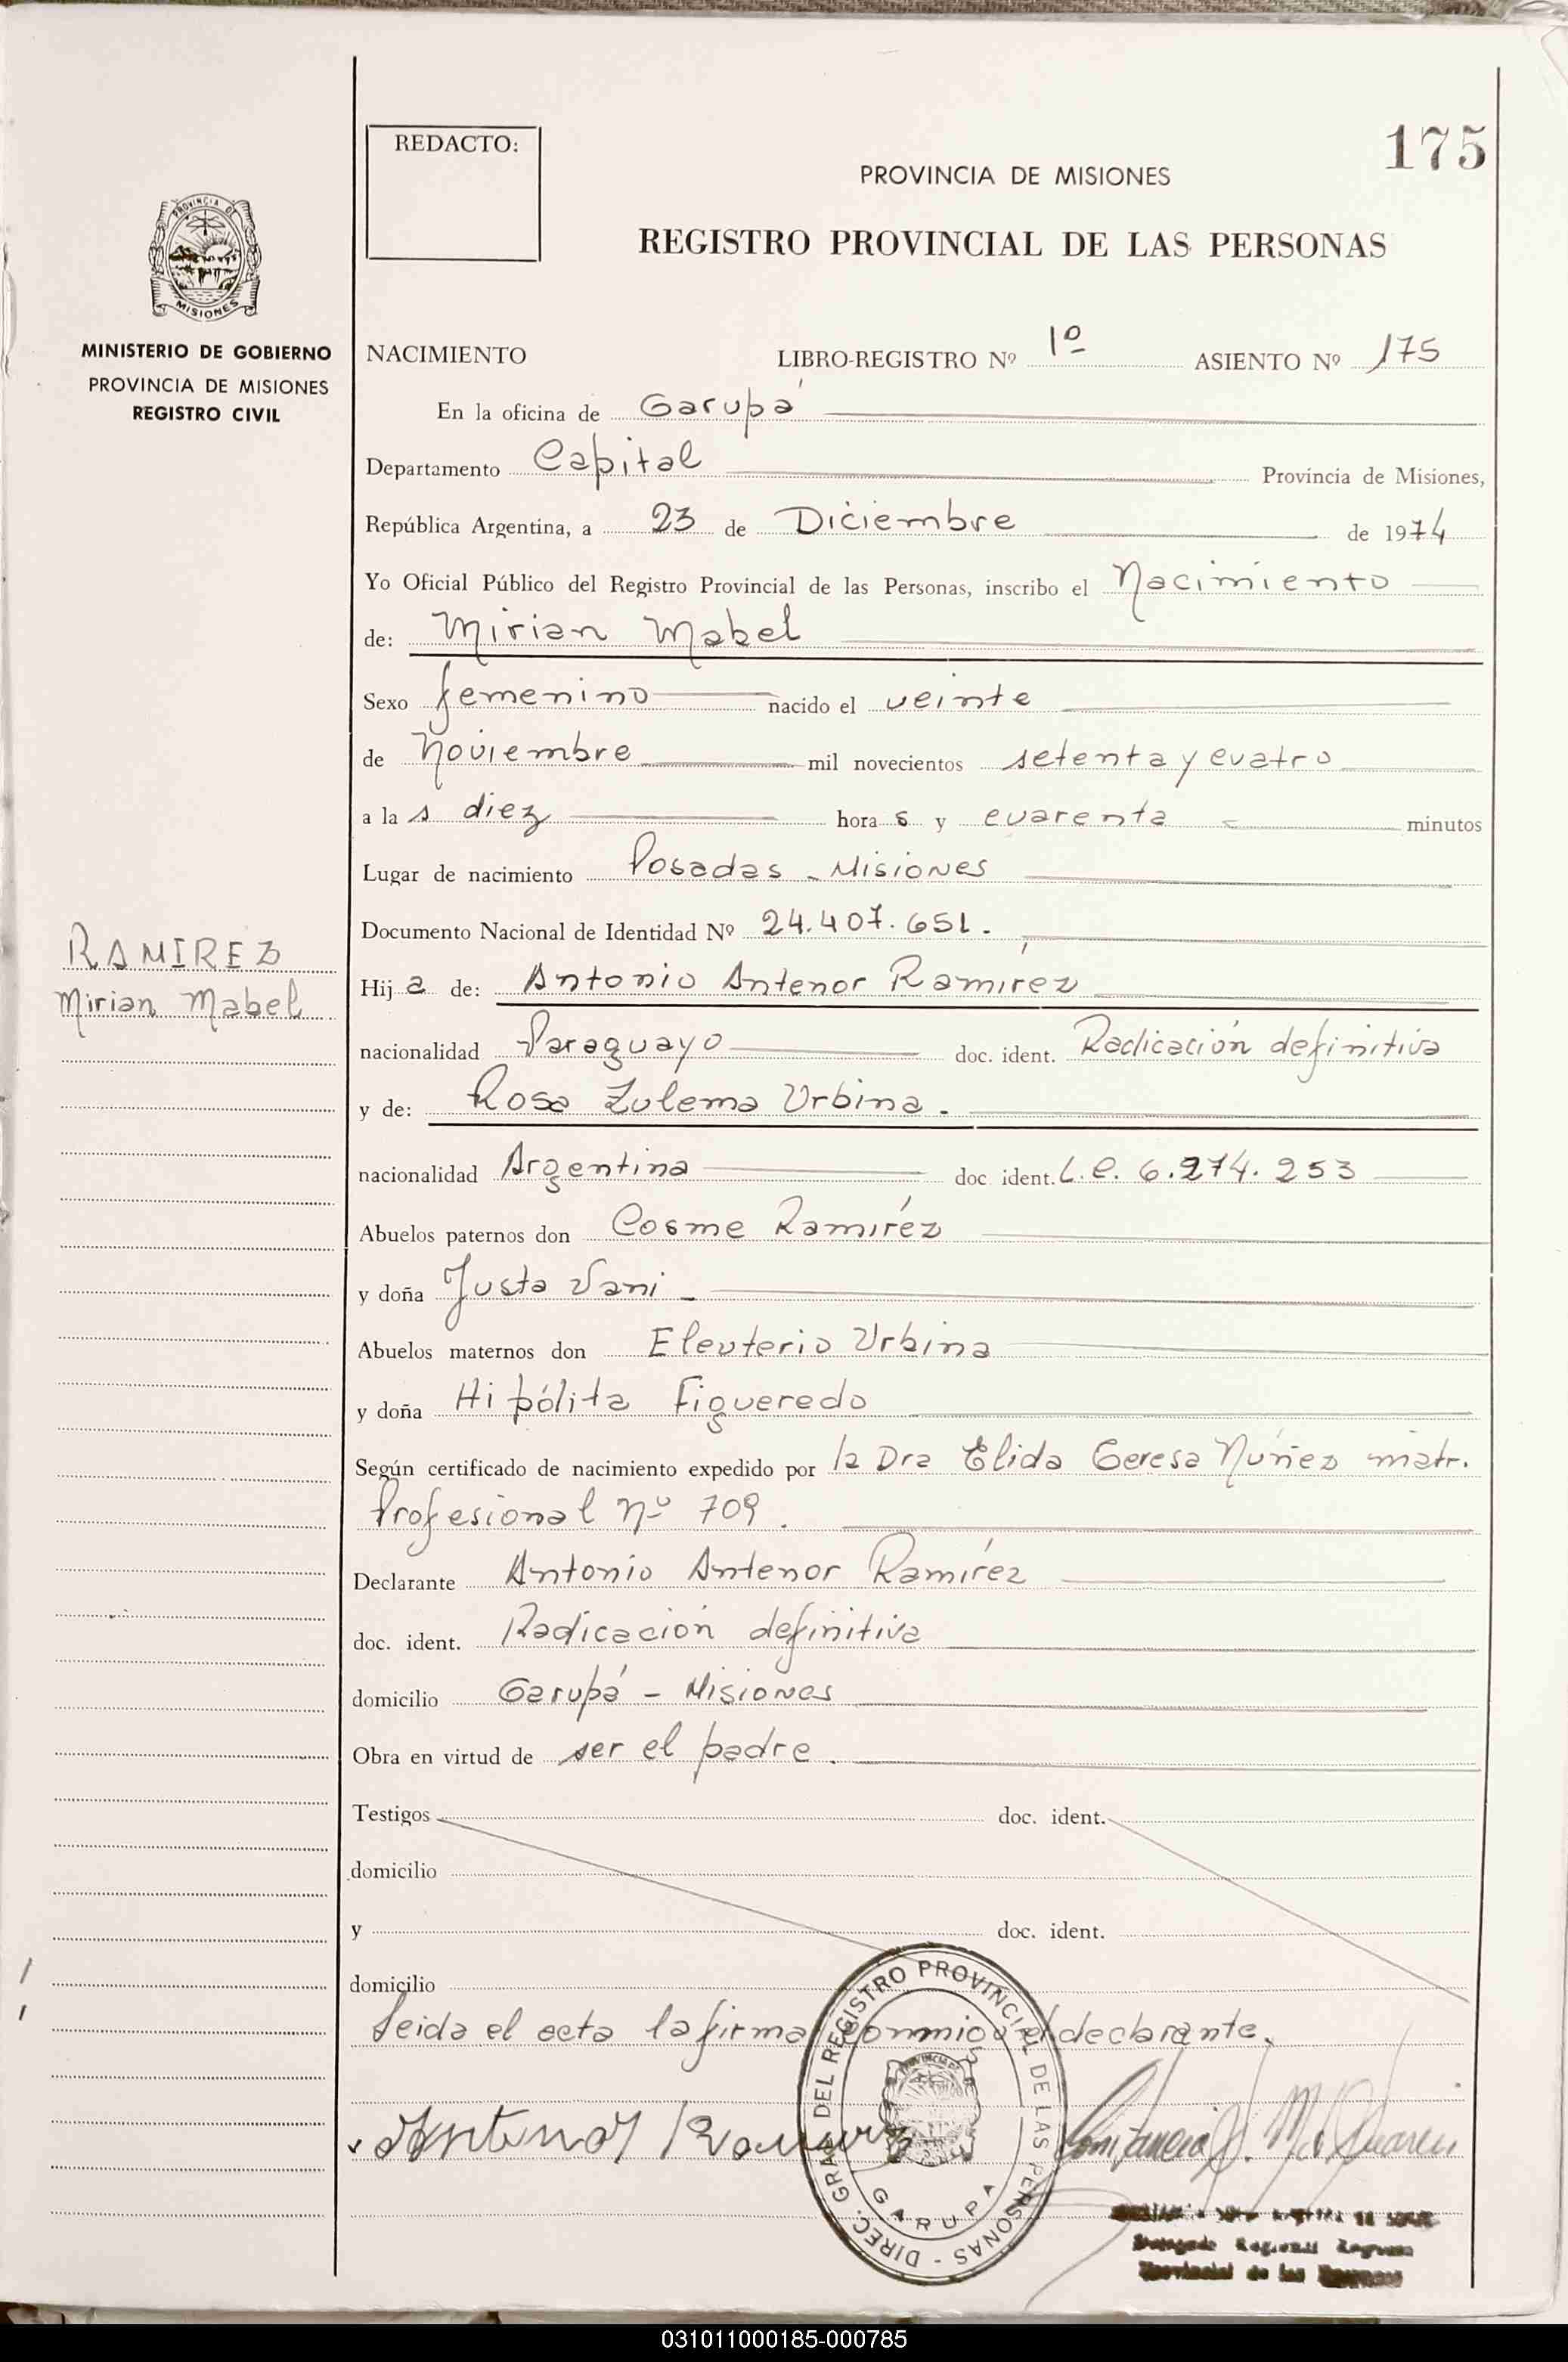 REDACTO:
175
PROVINCIA DE MISIONES
REGISTRO PROVINCIAL DE LAS PERSONAS
PROVINCIA DE
MISIONES
MINISTERIO DE GOBIERNO
PROVINCIA DE MISIONES
REGISTRO CIVIL
NACIMIENTO LIBRO-REGISTRO Nº 1º ASIENTO Nº 175
En la oficina de Garupá
Departamento Capital Provincia de Misiones,
República Argentina, a 23 de Diciembre de 1974
Yo Oficial Público del Registro Provincial de las Personas, inscribo el Nacimiento
de: Mirian Mabel
Sexo femenino nacido el veinte
de Noviembre mil novecientos setenta y cuatro
a la s diez hora s y cuarenta minutos
Lugar de nacimiento Posadas - Misiones
Documento Nacional de Identidad Nº 24.407.651.
RAMIREZ
Mirian Mabel
Hij a de: Antonio Antenor Ramírez
nacionalidad Paraguayo doc. ident. Radicación definitiva
y de: Rosa Zulema Urbina.
nacionalidad Argentina doc ident. L.C. 6.274.253
Abuelos paternos don Cosme Ramiréz
y doña Justa Vani
Abuelos maternos don Eleuterio Urbina
y doña Hipólita Figueredo
Según certificado de nacimiento expedido por la Dra Elida Teresa Nuñez matr.
Profesional nº 709.
Declarante Antonio Antenor Ramírez
doc. ident. Radicación definitiva
domicilio Garupá - Misiones
Obra en virtud de ser el padre.
Testigos doc. ident.
domicilio
y doc. ident.
domicilio
Leida el acta la firma conmigo el declarante.
DIREC. GRAL. DEL REGISTRO PROVINCIAL DE LAS PERSONAS -
GARUPA
Antenor Ramirez
Delegado Regional Registro
Provincial de las Personas
031011000185-000785